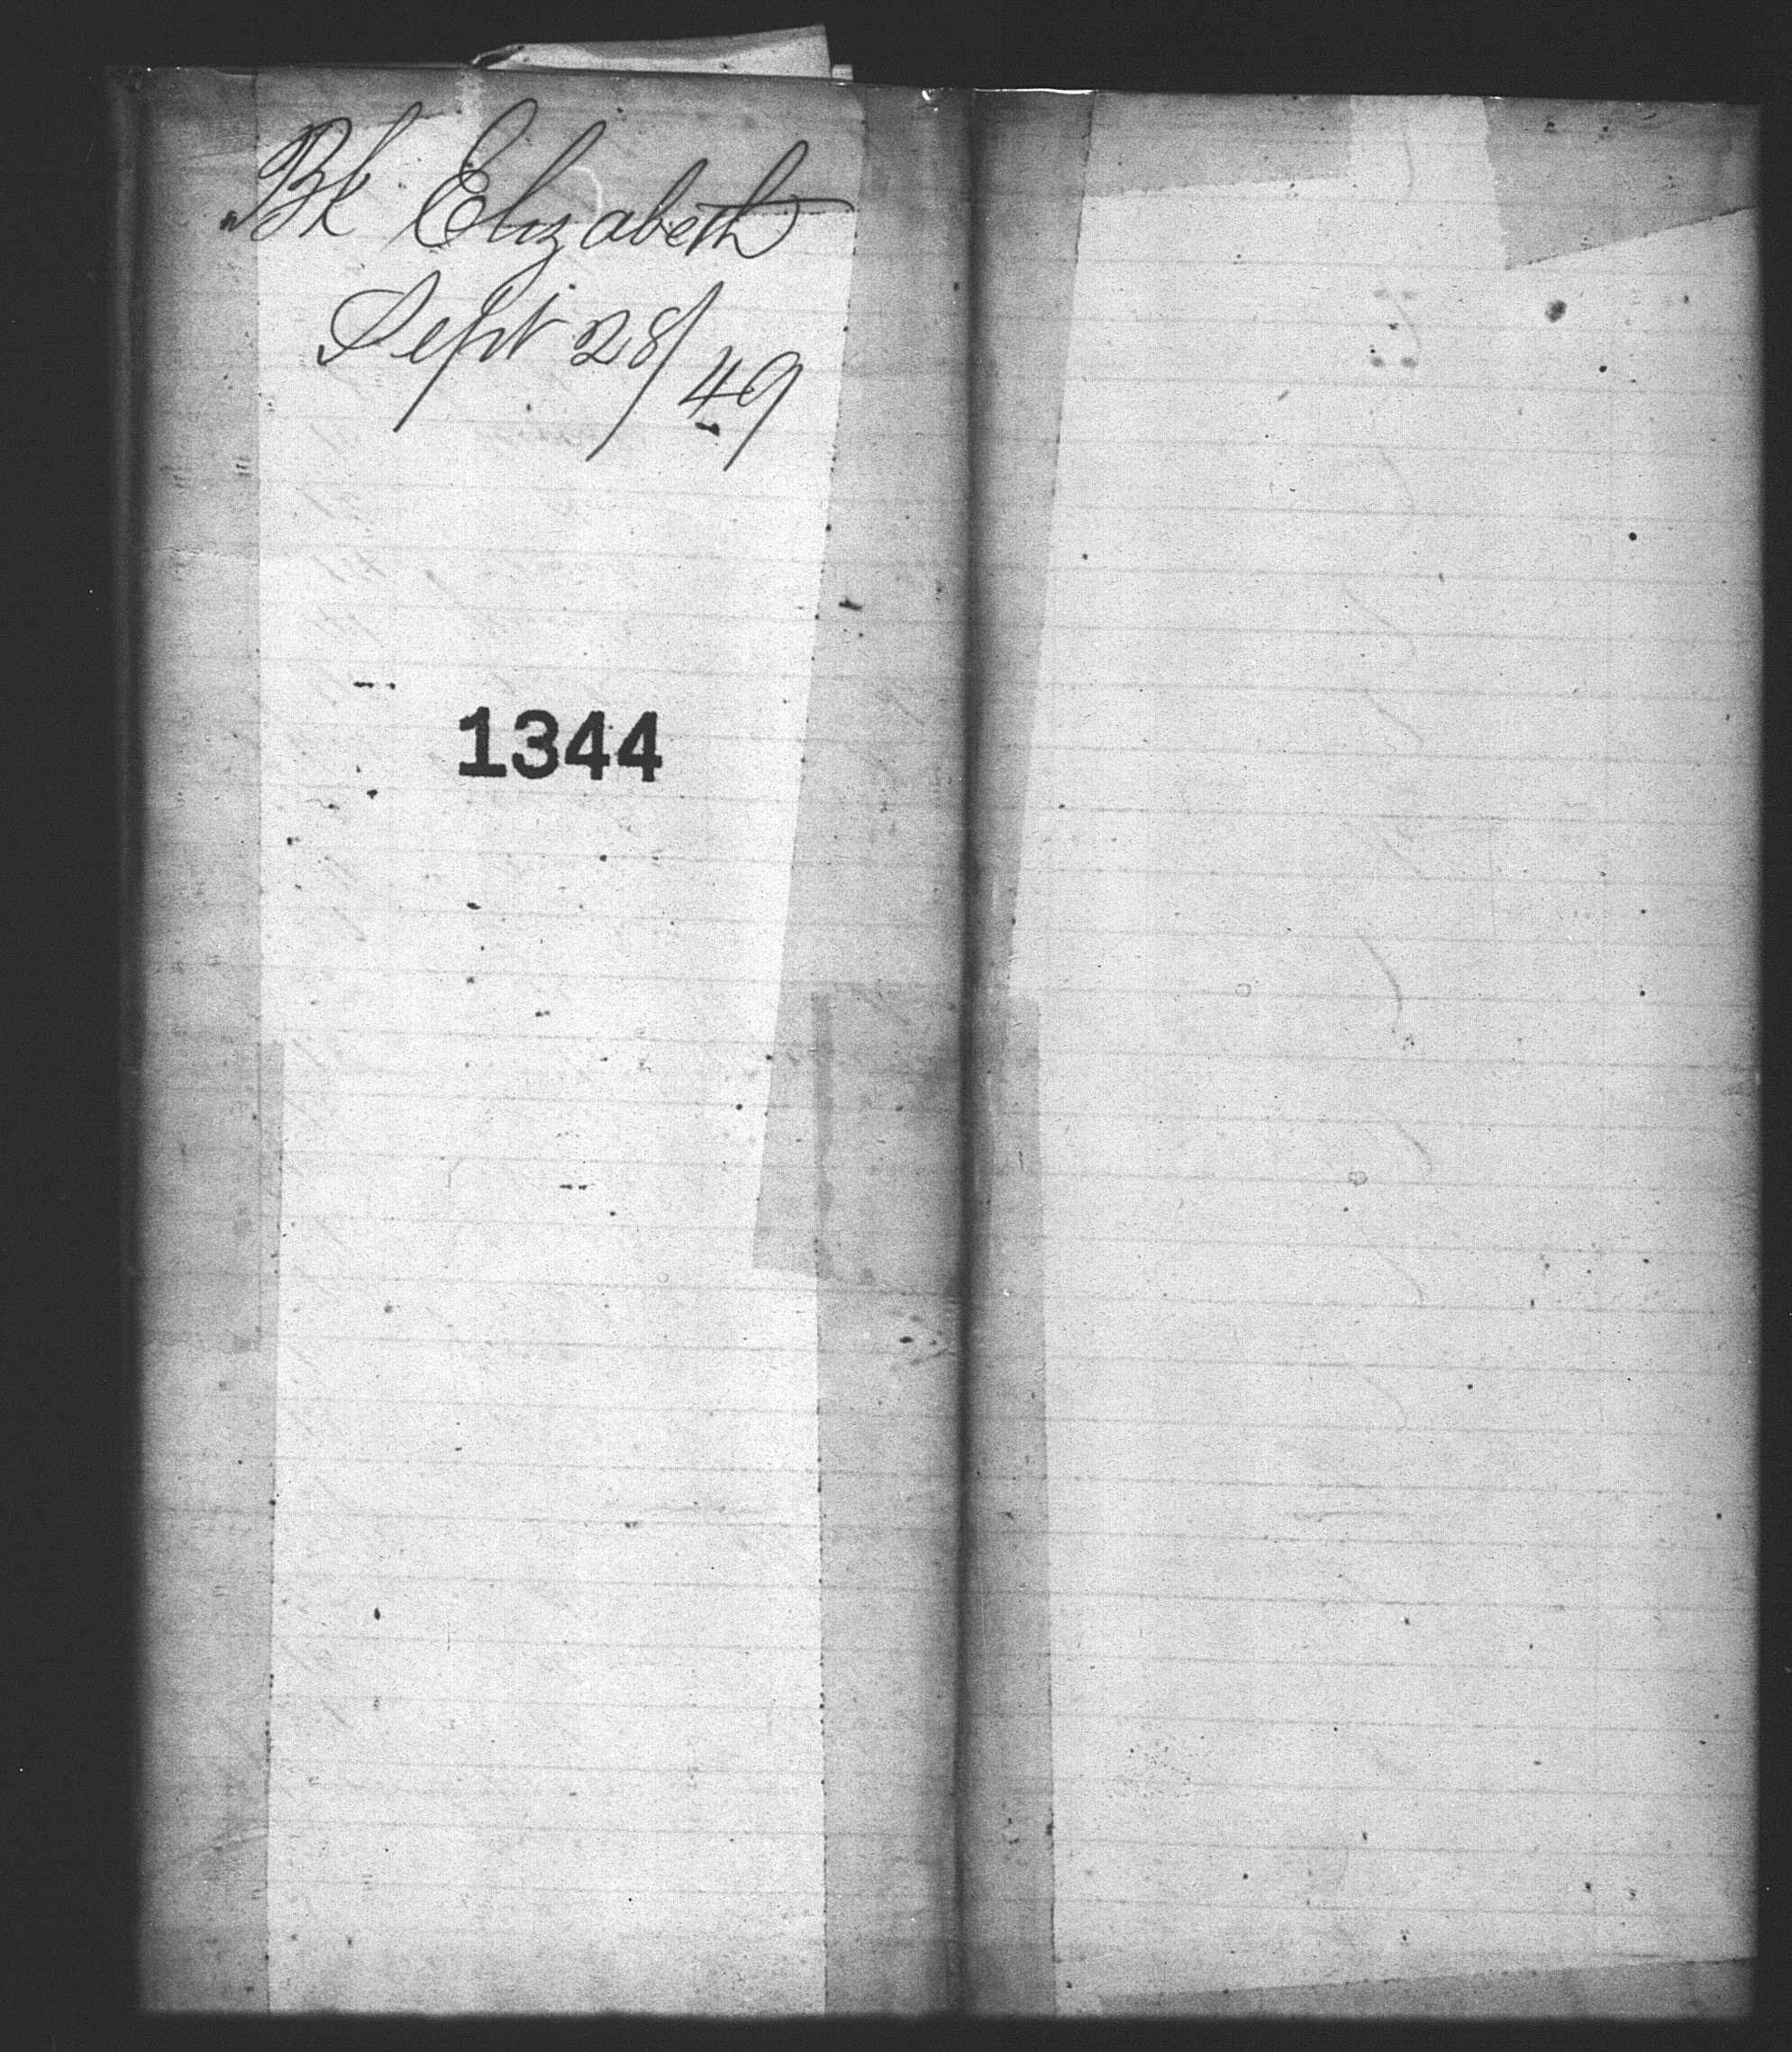 Bk Elizabeth
Sept 28/49
1344